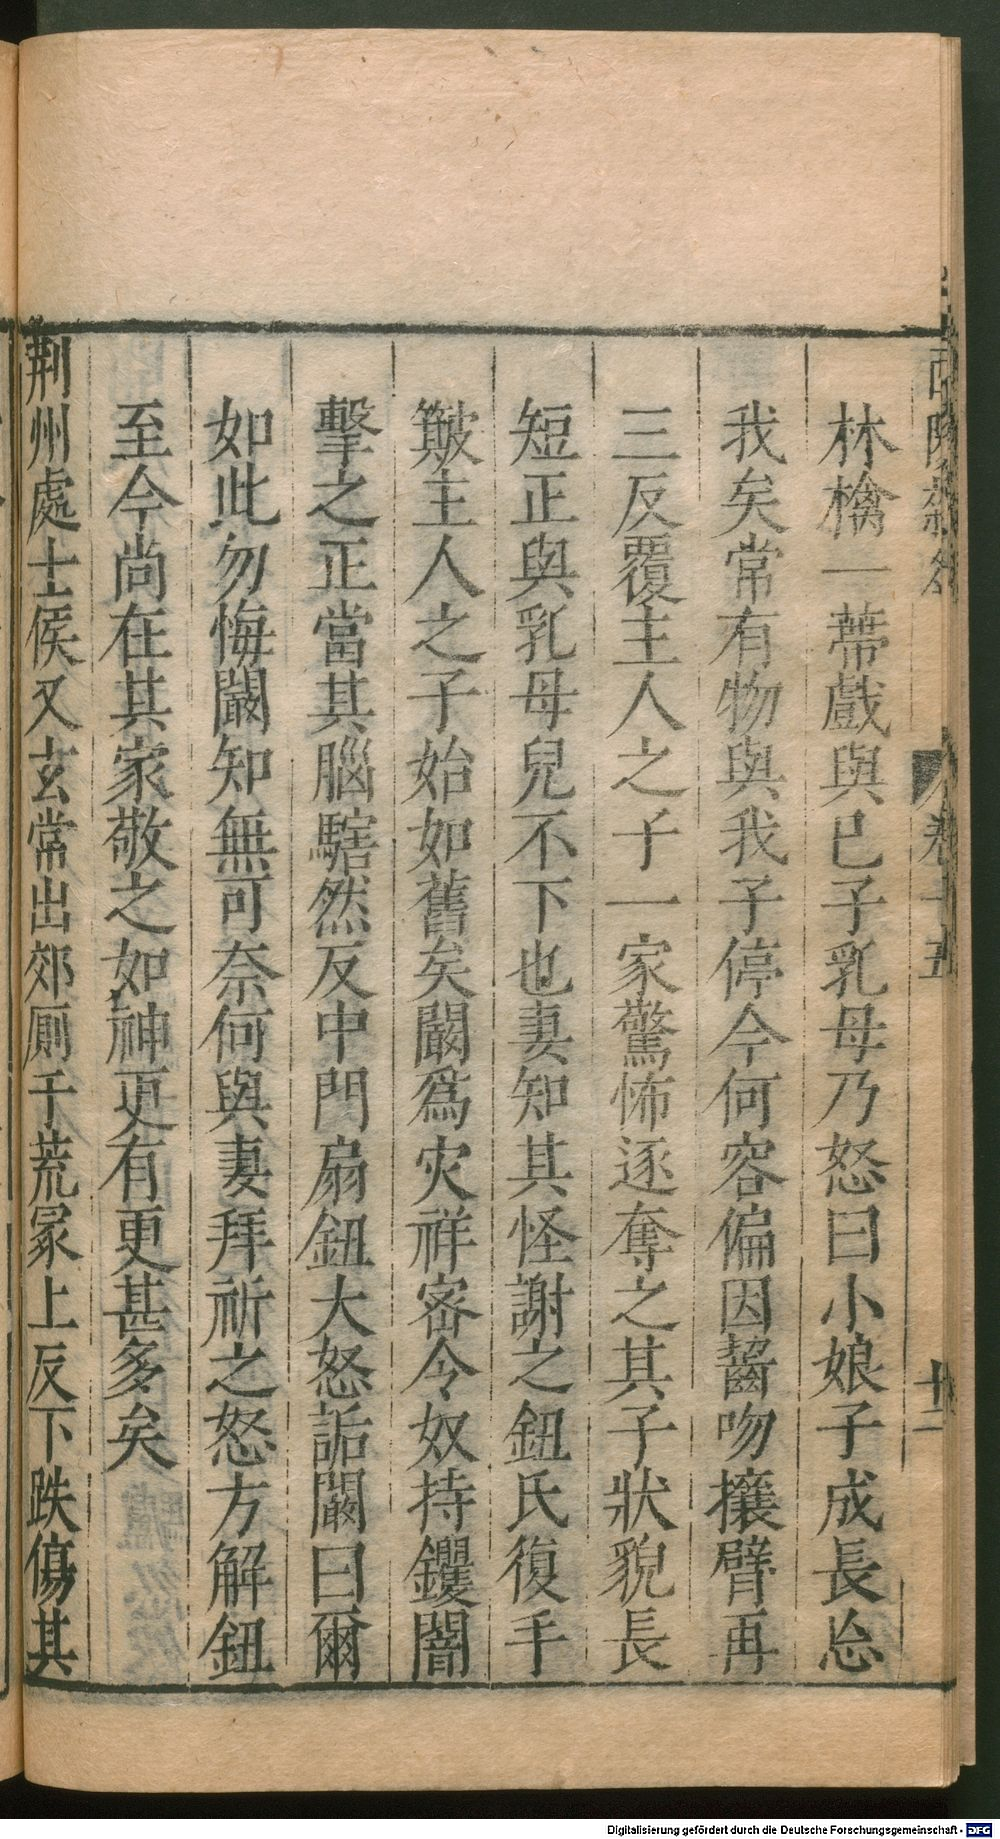 林檎一蔕戲與巳子乳母乃怒曰小娘子成長忩
我矣常有物與我子停今何容偏因齧吻攘臂再
三反覆主人之子一家驚怖逐奪之其子狀貌長
短正與乳母兒不下也妻知其怪謝之鈕氏復手
簸主人之子始如舊矣闞爲灾祥密令奴持钁闇
擊之正當其腦騞然反中門扇鈕大怒詬闞曰爾
如此勿悔闞知無可奈何與妻拜祈之怒方解鈕
至今尚在其家敬之如神更有更甚多矣
荆州處士侯又玄常出郊厠于荒冢上反下跌傷其
卷十五
十一
Digitalisierung gefördert durch die Deutsche Forschungsgemeinschaft - DFG